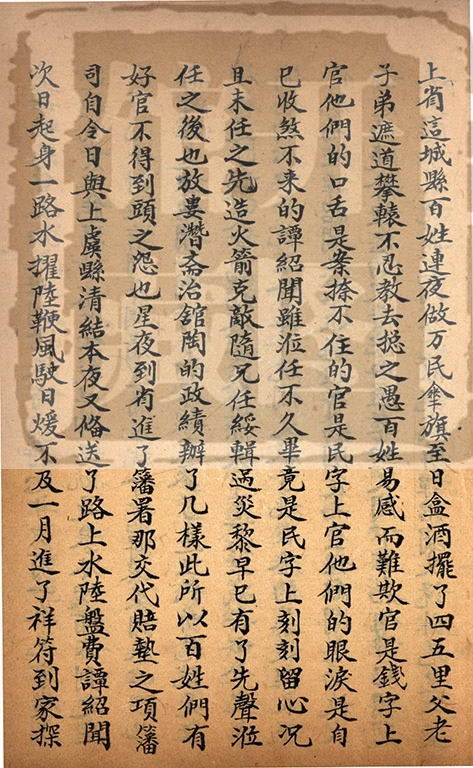 上省這城縣百姓連夜做万民傘旗至日盒酒擺了四五里父老
子弟遮道攀轅不忍教去捴之愚百姓易感而難欺官是錢字上
官他們的口舌是案捺不住的官是民字上官他們的眼淚是自
已收煞不来的譚紹聞雖涖任不久畢竟是民字上刻刻留心况
且未任之先造火箭克敵隨兄任綏輯過災黎早已有了先聲涖
任之後也放婁潛斋治舘陶的政績辦了几樣此所以百姓們有
好官不得到頭之怨也星夜到省進了籓署那交代賠墊之項籓
司自令日與上虞縣清結本夜又俻送了路上水陸盤費譚紹聞
次日起身一路水擢陸鞭風駛日煖不及一月進了祥符到家探